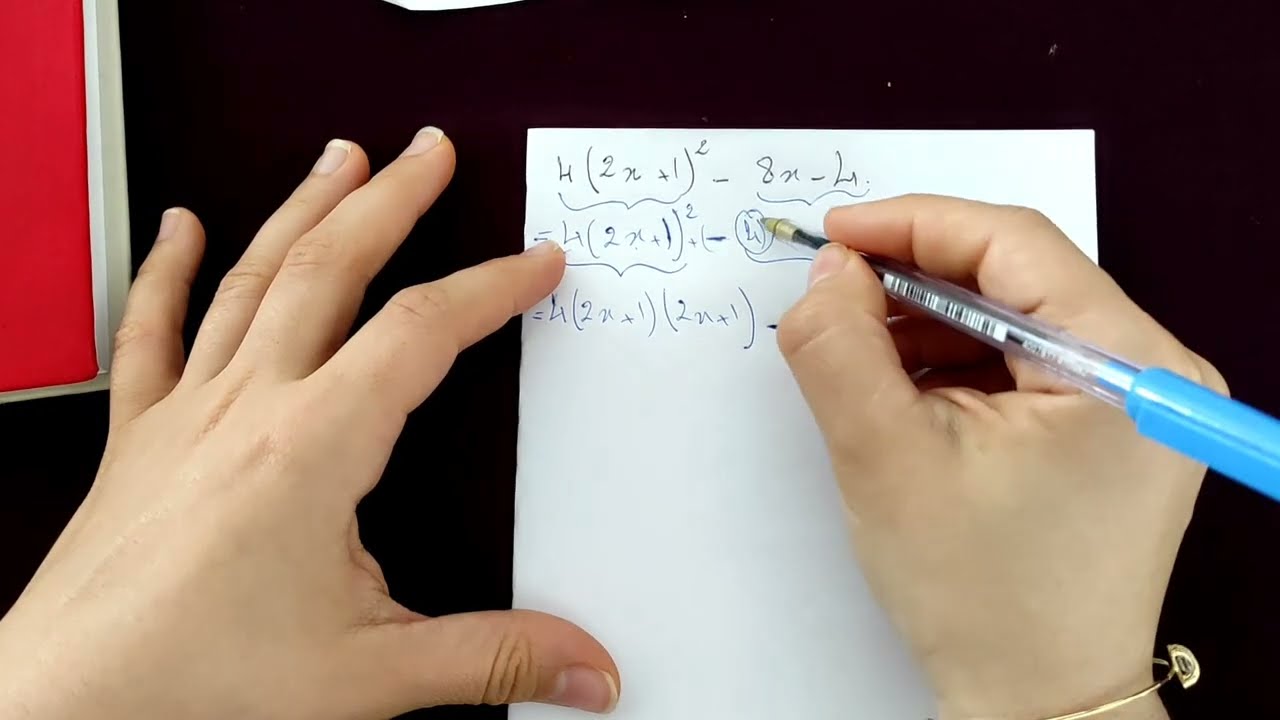 4(2x+1)² - 8x - 4.
= 4(2x+1)² + (- 4
= 4(2x+1)(2x+1) -